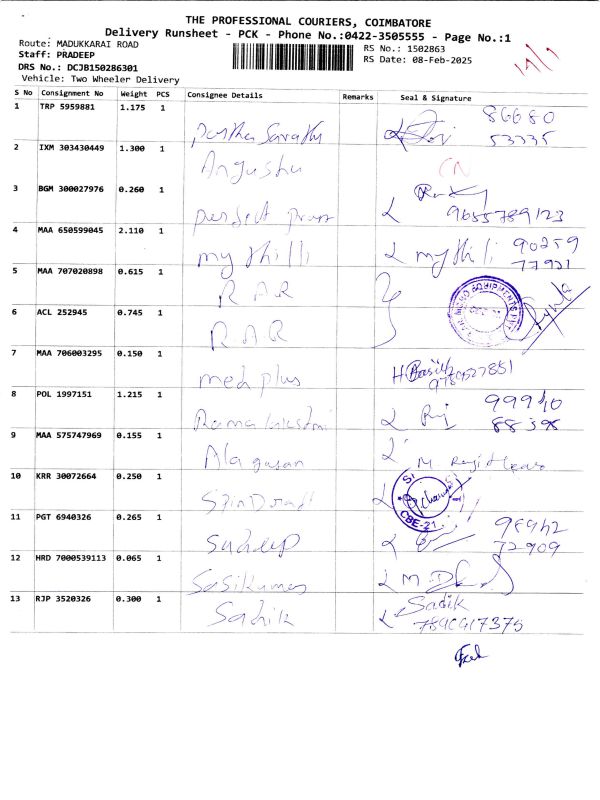 THE PROFESSIONAL COURIERS, COIMBATORE
Delivery Runsheet - PCK - Phone No.:0422-3505555 - Page No.:1
Route: MADUKKARAI ROAD
Staff: PRADEEP
DRS No.: DCJB150286301
Vehicle: Two Wheeler Delivery
RS No.: 1502863
RS Date: 08-Feb-2025
S No Consignment No Weight PCS Consignee Details Remarks Seal & Signature
1 TRP 5959881 1.175 1 Partha Sarathy 86680
53335
2 IXM 303430449 1.300 1 Angushu CN
3 BGM 300027976 0.260 1 perfect 9655789123
4 MAA 650599045 2.110 1 my thilli mythili 90259
77921
5 MAA 707020898 0.615 1 RAR
6 ACL 252945 0.745 1 RAR
7 MAA 706003295 0.150 1 med plus
8 POL 1997151 1.215 1 Rama 99940
88398
9 MAA 575747969 0.155 1 Alagusan M
10 KRR 30072664 0.250 1 CBE-21
11 PGT 6940326 0.265 1 Sudeep 98942
72909
12 HRD 7000539113 0.065 1 Sasikumar
13 RJP 3520326 0.300 1 Sadik Sadik